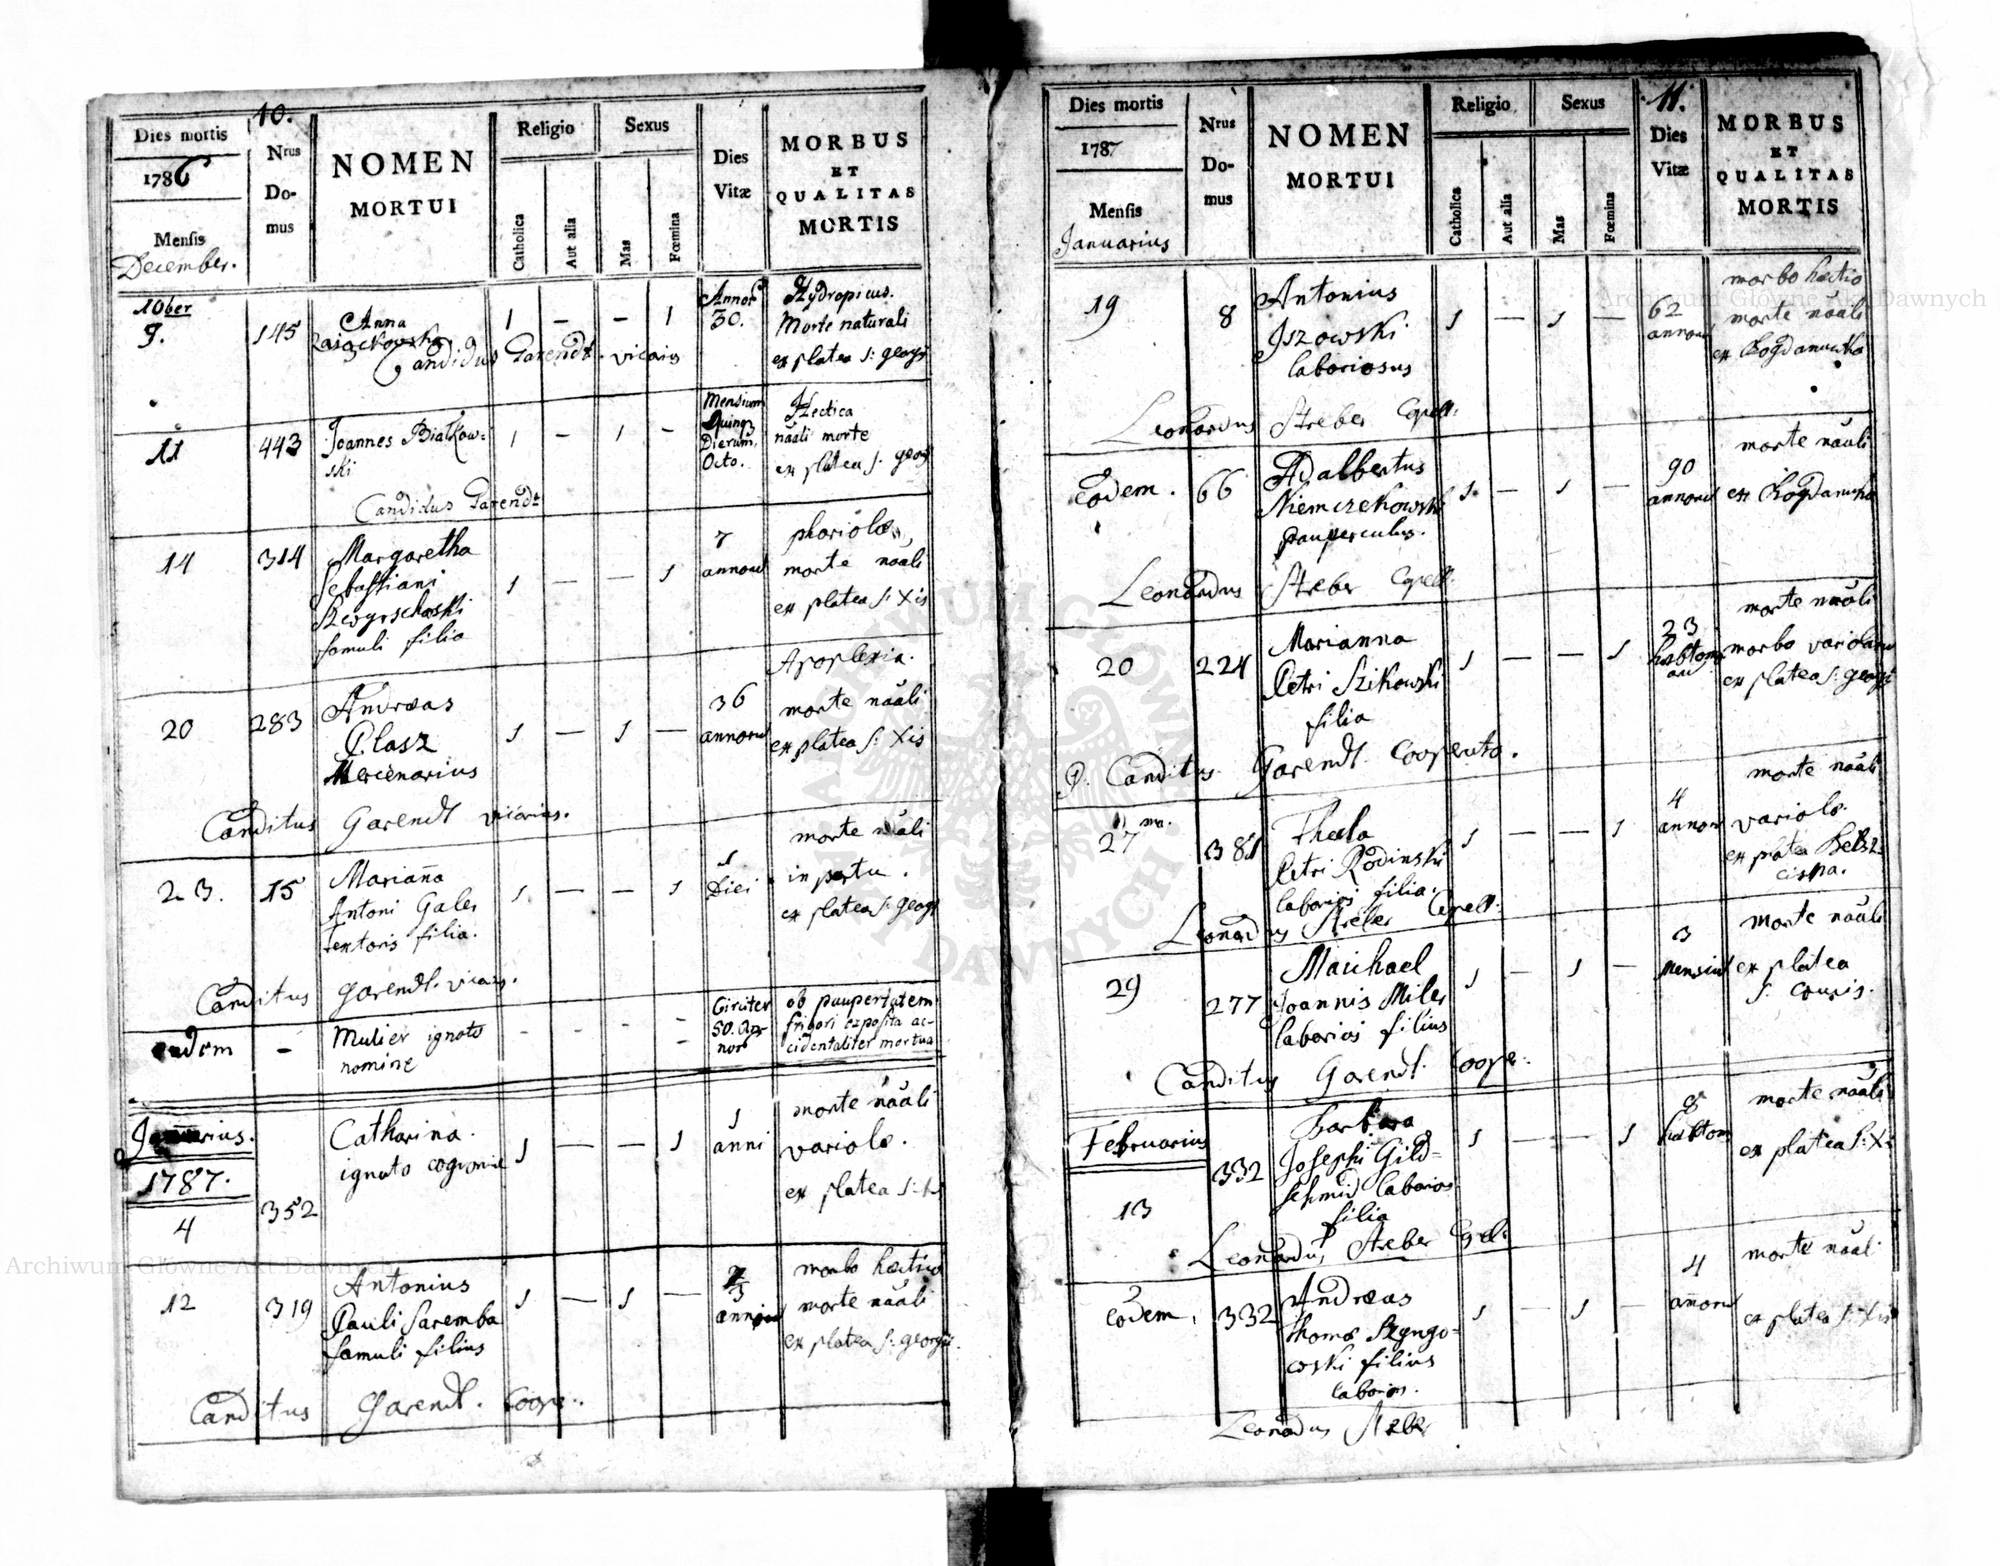 10.
Dies mortis
1786
Mensis
December.
Nrus
Do-
mus
NOMEN
MORTUI
Religio
Catholica
Aut alia
Sexus
Mas
Fœmina
Dies
Vitæ
MORBUS
ET
QUALITAS
MORTIS
10ber
9.
145
Anna
1 — — 1
Annor
30.
Hydropicus.
Morte naturali
ex platea S: georgi
Candidus Garendt vicarius
11
443
Joannes Białkow:
ski
1 — 1 —
Mensium
Quinq
Dierum
Octo.
Hectica
nãali morte
ex platea S: georg
Candidus Garendt
14
314
Margaretha
Sebastiani
famuli filia
1 — — 1
7
annorum
morte nãali
ex platea S: Xis
20
283
Andreas
Plasz
Mercenarius
1 — 1 —
36
annorum
Apoplexia.
morte nãali
ex platea S: Xis
Canditus Garendt vicarius.
23.
15
Mariana
Antoni Galer
textoris filia.
1 — — 1
1
diei
morte nãali
in partu.
ex platea S: georgi
Canditus Garendt. vicarius.
eodem
—
Mulier ignoto
nomine
- - - -
Circiter
50. An-
nor
ob paupertatem
frigori exposita ac-
cidentaliter mortua
Januarius.
1787.
4
352
Catharina.
ignoto cognomie
1 — — 1
1
anni
morte nãali
variolo.
ex platea
12
319
Antonius
Pauli Saremba
famuli filius
1 — 1 —
3
morbo hectico
morte nãali
ex platea S: georgii.
Canditus Garendt. Coope:
11.
Dies mortis
1787
Mensis
Januarius
Nrus
Do-
mus
NOMEN
MORTUI
Religio
Catholica
Aut alia
Sexus
Mas
Fœmina
Dies
Vitæ
MORBUS
ET
QUALITAS
MORTIS
19
8
Antonius
Jszowski
laboriosus
1 — 1 —
62
annorum
morbo hectio
morte nãali
ex Bogdanucha
Leonardus Streber Capell:
eodem.
66
Adalbertus
Niemczekowski
pauperculus.
1 — 1 —
90
annorum
morte nãali
ex Bogdanucha
Leonardus Streber Capell.
20
224
Marianna
Petri Szikowski
filia
1 — — 1
23
morte nãali
morbo variolarum
ex platea S: georgii
P. Canditus Garendt. Cooperato.
27ma.
381
Thecla
Petri Rodinski
laborios filia.
1 — — 1
4
annor
morte nãali
variolo.
ex platea
Leonardus Streber Capell:
29
277
Maichael
Joannis Miler
laborios filius
1 — 1 —
3
mensium
morte nãali
ex platea
S. crucis.
Canditus Garendt. Coope:
Februarius
13
332
Barbara
Josephi Gild=
schmid laborios
filia
1 — — 1
8
morte nãali
ex platea S: Xi
Leonardus Streber Capel:
eodem.
332
Andreas
Thomæ Szyngo=
woski filius
laborios.
1 — 1 —
4
annorum
morte nãali
ex platea S: Xis
Leonardus Streber
Archiwum Główne Akt Dawnych
Archiwum Główne Akt Dawnych
ARCHIWUM GŁÓWNE AKT DAWNYCH